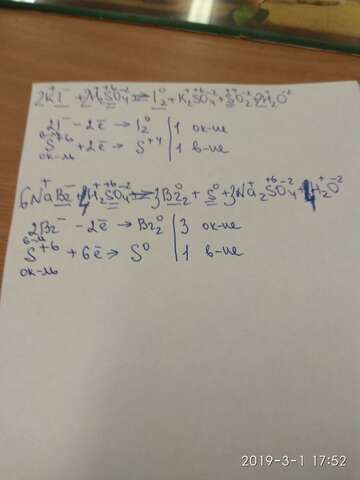 2KI⁻ + 2H₂SO₄ = I₂⁰ + K₂SO₄ + SO₂ + 2H₂O⁻²
2I⁻ - 2ē → I₂⁰ | 1 ок-ие
S⁺⁶ + 2ē → S⁺⁴ | 1 в-ие
ок-ль
6NaBr⁻ + 4H₂SO₄ = 3Br₂⁰ + S⁰ + 3Na₂SO₄ + 4H₂O⁻²
2Br⁻ - 2ē → Br₂⁰ | 3 ок-ие
в-ль
S⁺⁶ + 6ē → S⁰ | 1 в-ие
ок-ль
2019-3-1 17:52